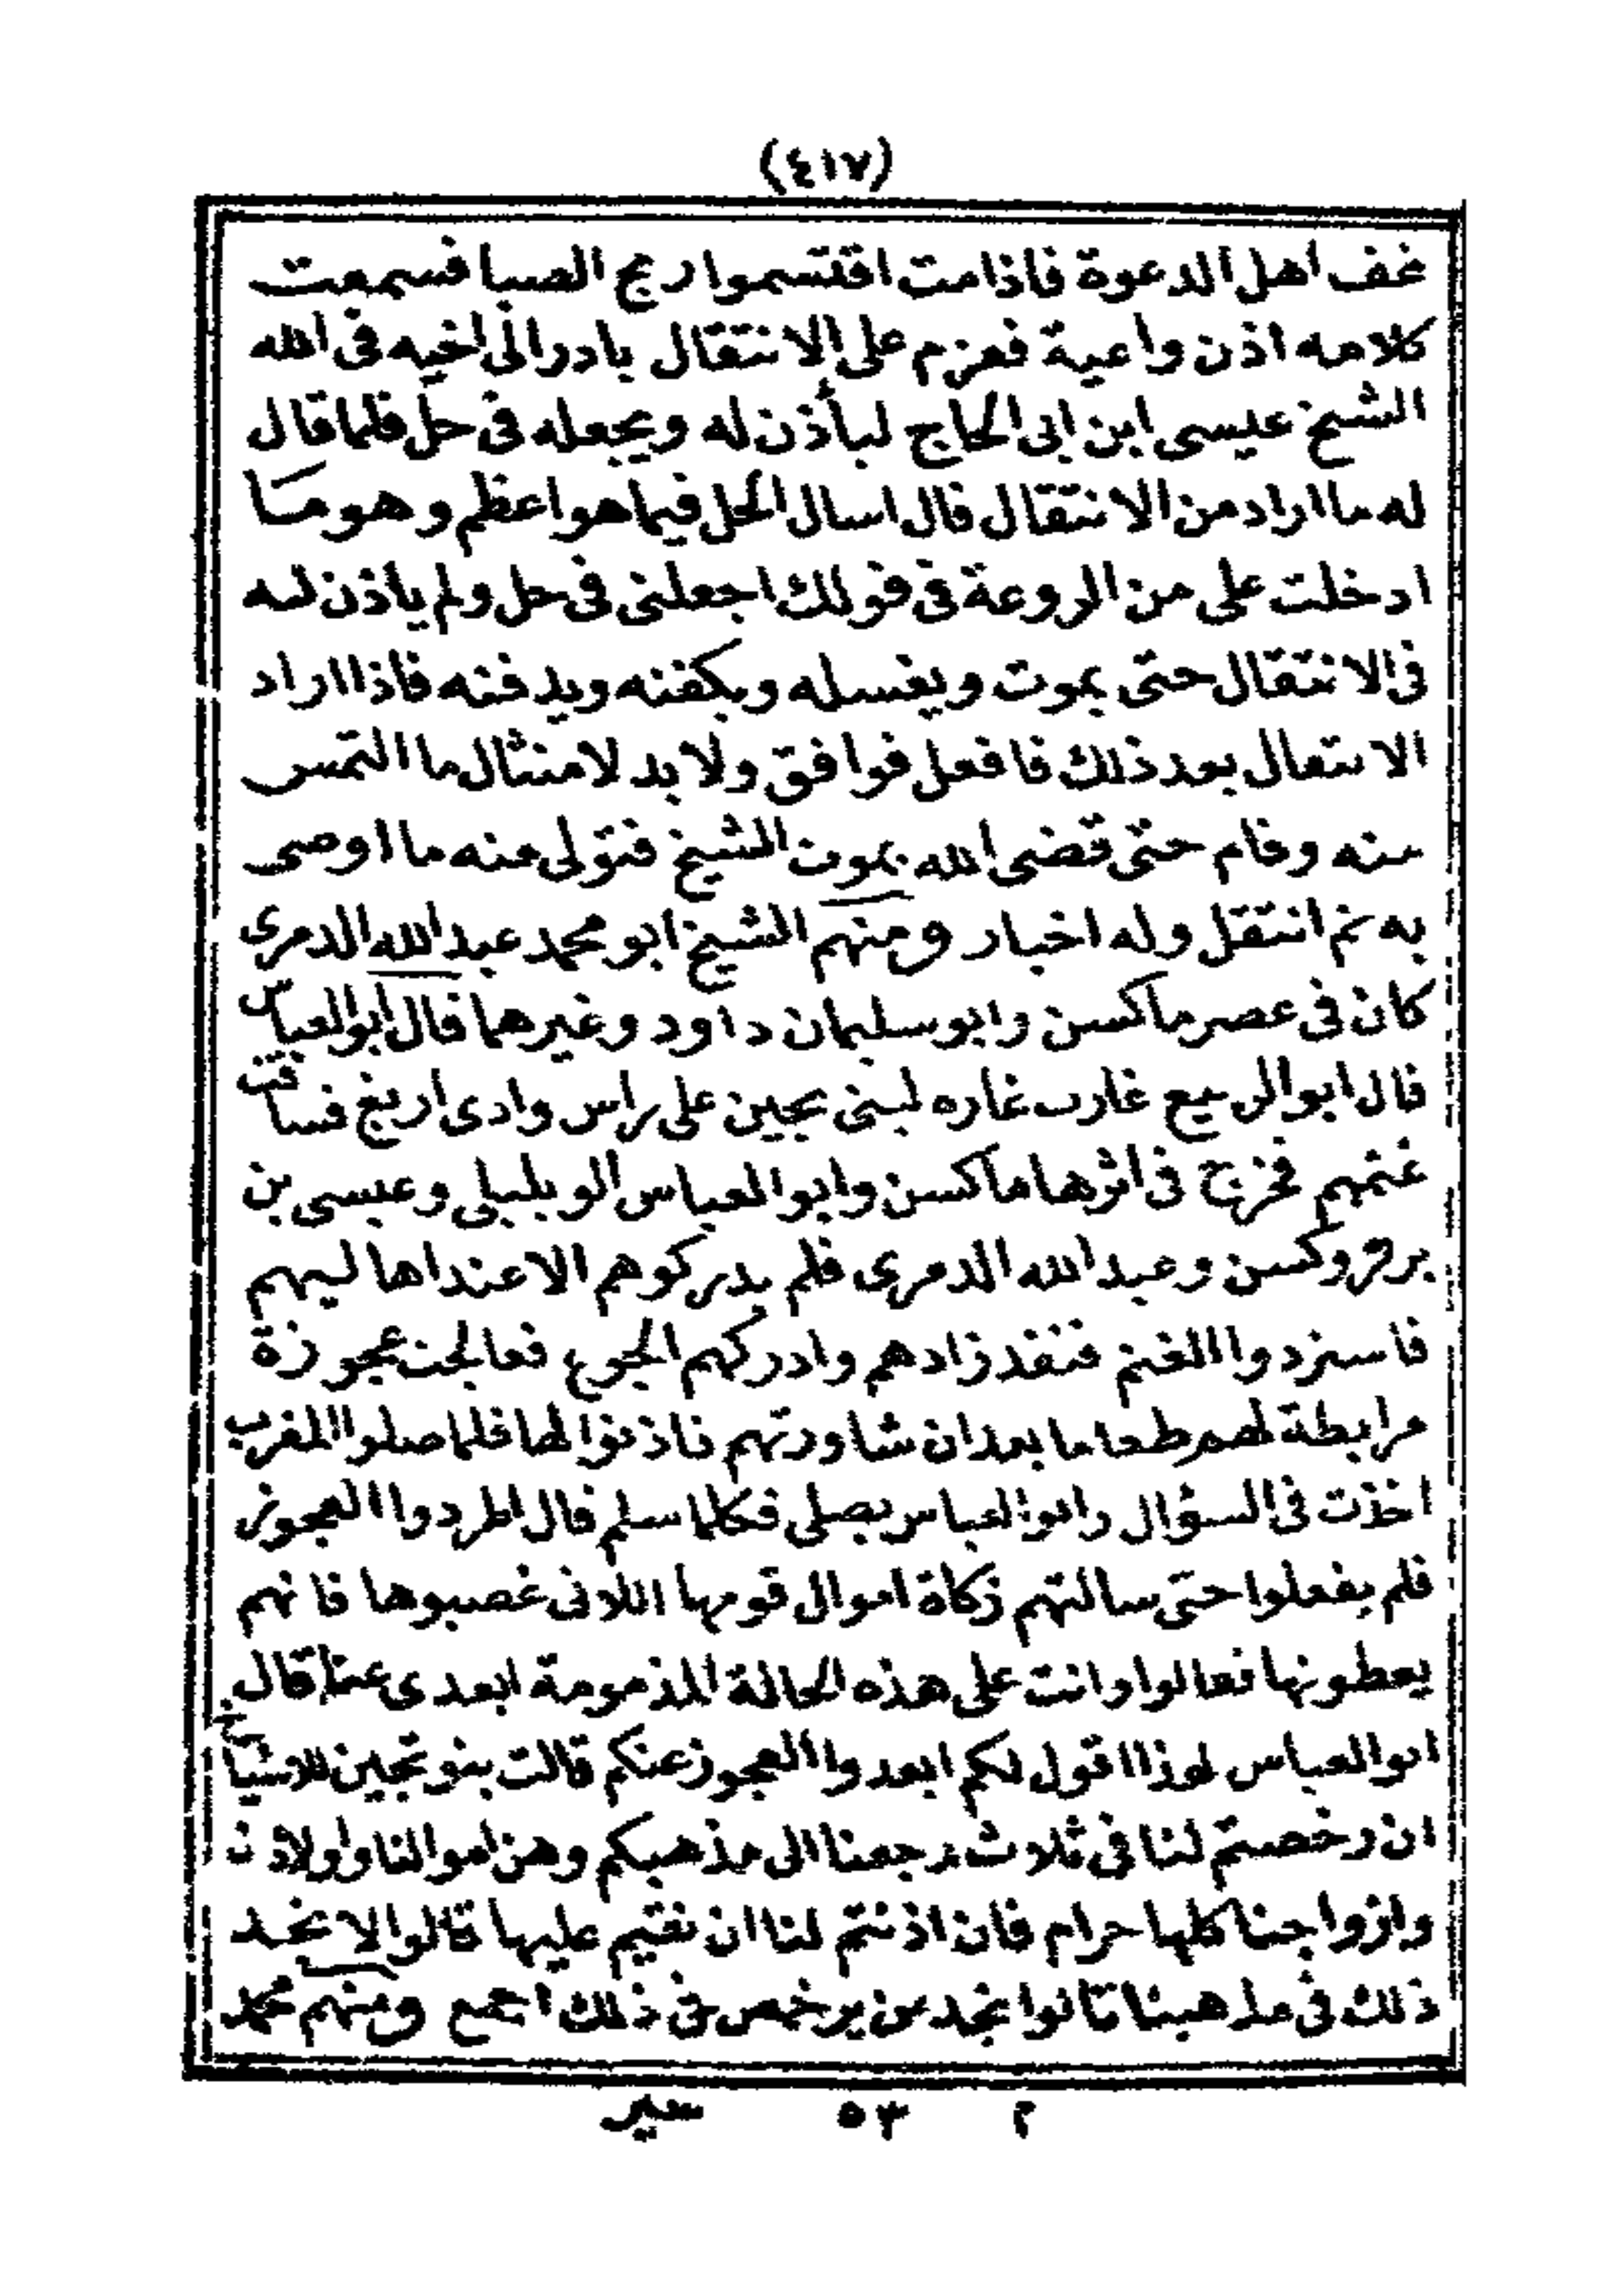 (٤١٧)
نخف اهل الدعوة فاذا مت اقتسموا ريح الصبا فسمعت
كلامه اذن واعية فعزم على الانتقال بادر الى اخيه فى الله
الشيخ عيسى ابن ابى الحاج ليأذن له ويجعله فى حل فلما قال
له ما اراد من الانتقال قال اسال الحل فيما هو اعظم وهو ما
ادخلت على من الروعة فى قولك اجعلنى فى حل ولم ياذن له
فى الانتقال حتى يموت ويغسله ويكفنه ويدفنه فاذا اراد
الانتقال بعد ذلك فافعل فوافق ولابد لامتثال ما التمس
منه وقام حتى قضى الله بموت الشيخ فتولى منه ما اوصى
به ثم انتقل وله اخبار ومنهم الشيخ ابو محمد عبد الله الدمرى
كان فى عصر ماكسن وابو سليمان داود وغيرهما قال ابو العباس
قال ابو الربيع غارت غاره لبنى تجين على راس وادى اريغ فساقت
غنمهم فخرج فى اثرها ماكسن وابو العباس الويليلى وعيسى بن
يرفروكسن وعبد الله الدمرى فلم يدركوهم الا عند اهاليهم
فاستردوا الغنم فنفد زادهم وادركهم الجوع فعالجت عجوزة
مرابطة لهم طعاما بعد ان شاورتهم فاذنوا لها فلما صلوا المغرب
اخذت فى السؤال وابو العباس يصلى فكلما سلم قال اطردوا العجوز
فلم يفعلوا حتى سالتهم زكاة اموال قومها اللاتى غصبوها فانهم
يعطونها فقالوا وانت على هذه الحالة المذمومة ابعدى عنا قال
ابو العباس لهذا اقول لكم ابعدوا العجوز عنكم قالت بنو تجين للاشياخ
ان رخصتم لنا فى ثلاث رجعنا الى مذهبكم وهن اموالنا واولادنا
وازواجنا كلها حرام فان اذنتم لنا ان نقيم عليها قالوا لا نجد
ذلك فى مذهبنا قالوا نجد من يرخص فى ذلك اجمع ومنهم محمد
م ٥٣ سير